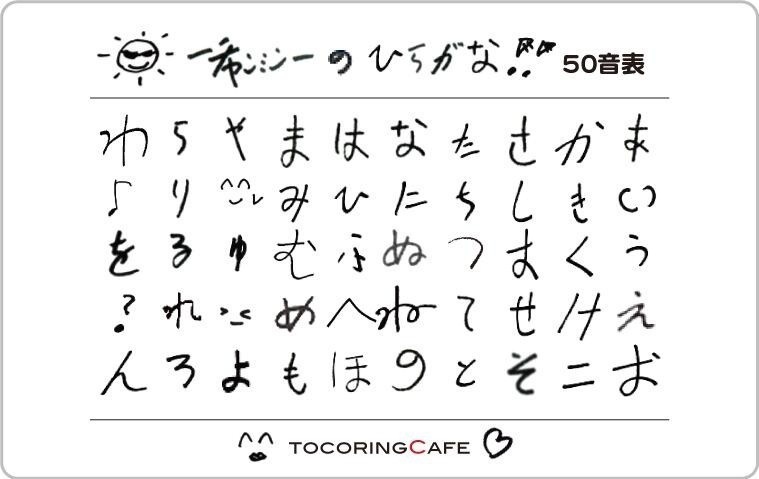 のひらがな!! 50音表
あいうえお
かきくけこ
さしすせそ
たちつてと
なにぬねの
はひふへほ
まみむめも
やゆよ
らりるれろ
わ♪を?ん
TOCORINGCAFE